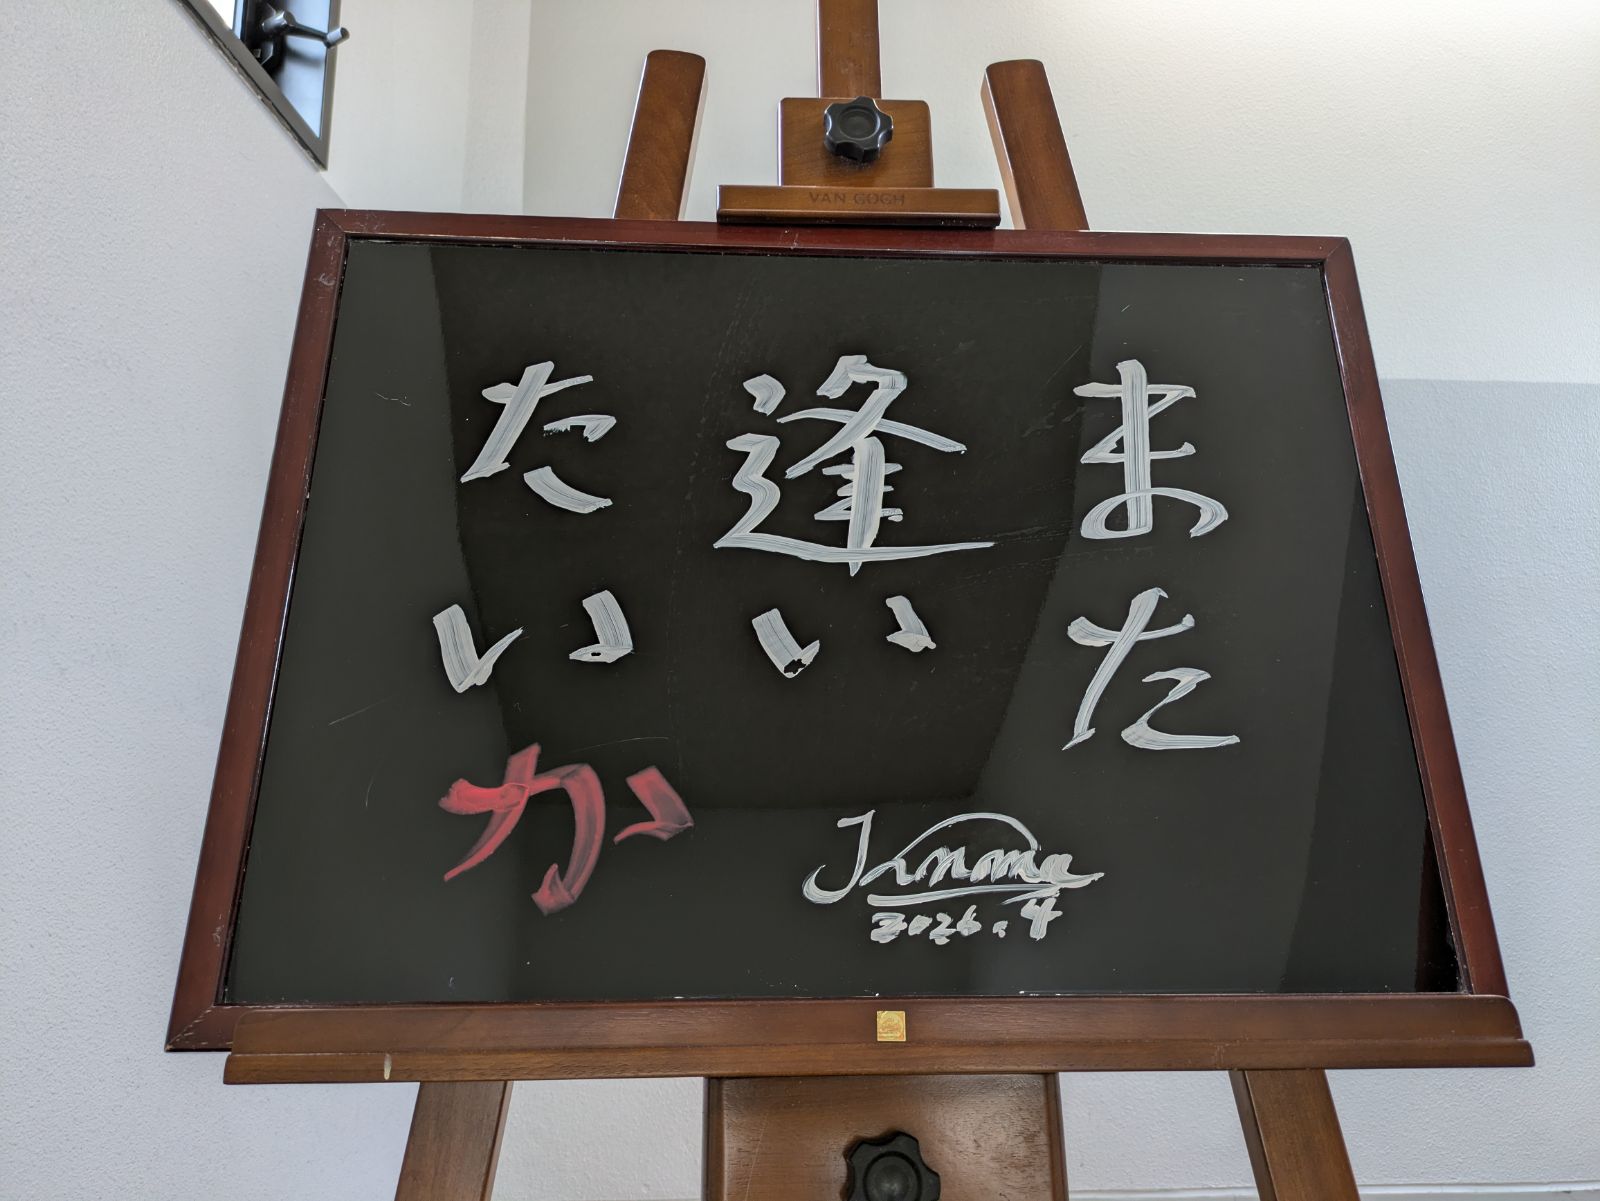 VAN GOGH
また
逢い
たいか
2026.4